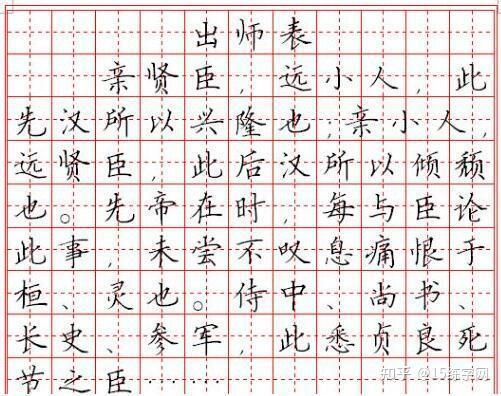 出师表
亲贤臣，远小人，此
先汉所以兴隆也；亲小人，
远贤臣，此后汉所以倾颓
也。先帝在时，每与臣论
此事，未尝不叹息痛恨于
桓、灵也。侍中、尚书、
长史、参军，此悉贞良死
节之臣······
知乎 @15练字网